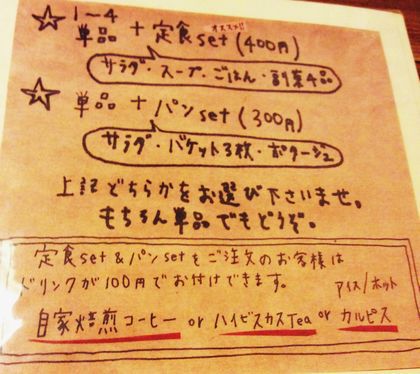 ☆ 1〜4
オススメ!!
単品 + 定食set (400円)
サラダ・スープ・ごはん・副菜4品
☆ 単品 + パンset (300円)
サラダ・バケット3枚・ポタージュ
上記どちらかをお選び下さいませ。
もちろん単品でもどうぞ。
定食set & パンsetをご注文のお客様は
ドリンクが100円でお付けできます。
アイス/ホット
自家焙煎コーヒー or ハイビスカスTea or カルピス